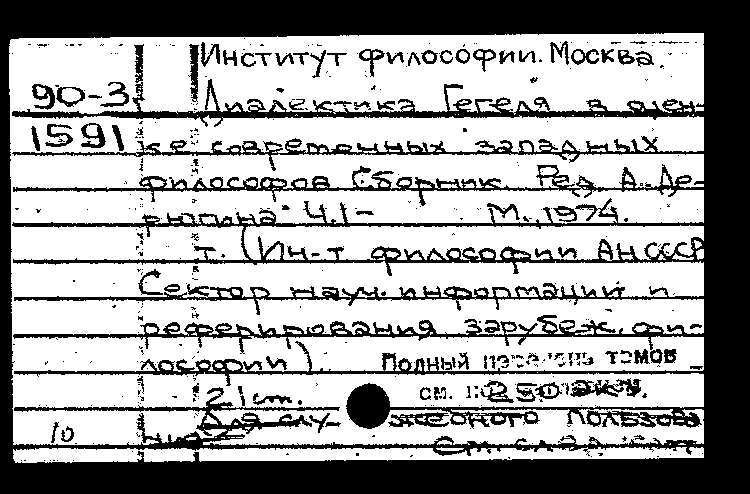 Институт философии. Москва.
90-3 Диалектика Гегеля в оцен-
1591 ке современных западных
философов Сборник. Ред. А. Де-
рюгина. Ч.1- М., 1974.
т. (Ин-т философии АН СССР
Сектор науч. информации и
реферирования зарубеж. фи-
лософии).
Полный перечень томов
21 см. см. 250 экз.
Для слу- жебного пользова
10 ния
См. след.